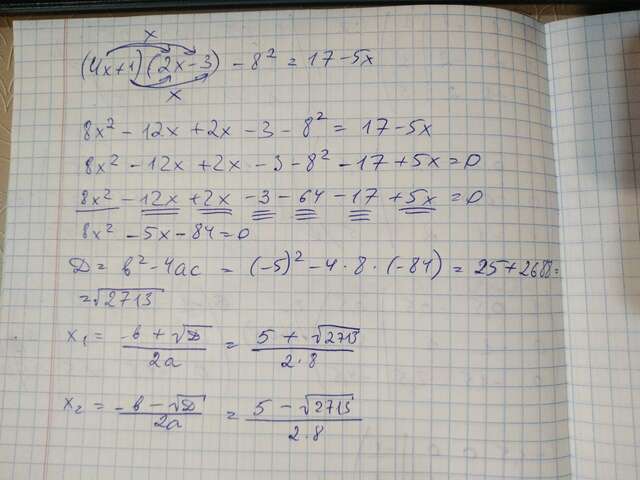 x
(4x+1)(2x-3) - 8² = 17-5x
x
8x² - 12x + 2x - 3 - 8² = 17-5x
8x² - 12x + 2x - 3 - 8² - 17 + 5x = 0
8x² - 12x + 2x - 3 - 64 - 17 + 5x = 0
8x² - 5x - 84 = 0
D = b² - 4ac = (-5)² - 4·8·(-84) = 25 + 2688 =
= √2713
x₁ = -b + √D / 2a = 5 + √2713 / 2·8
x₂ = -b - √D / 2a = 5 - √2713 / 2·8